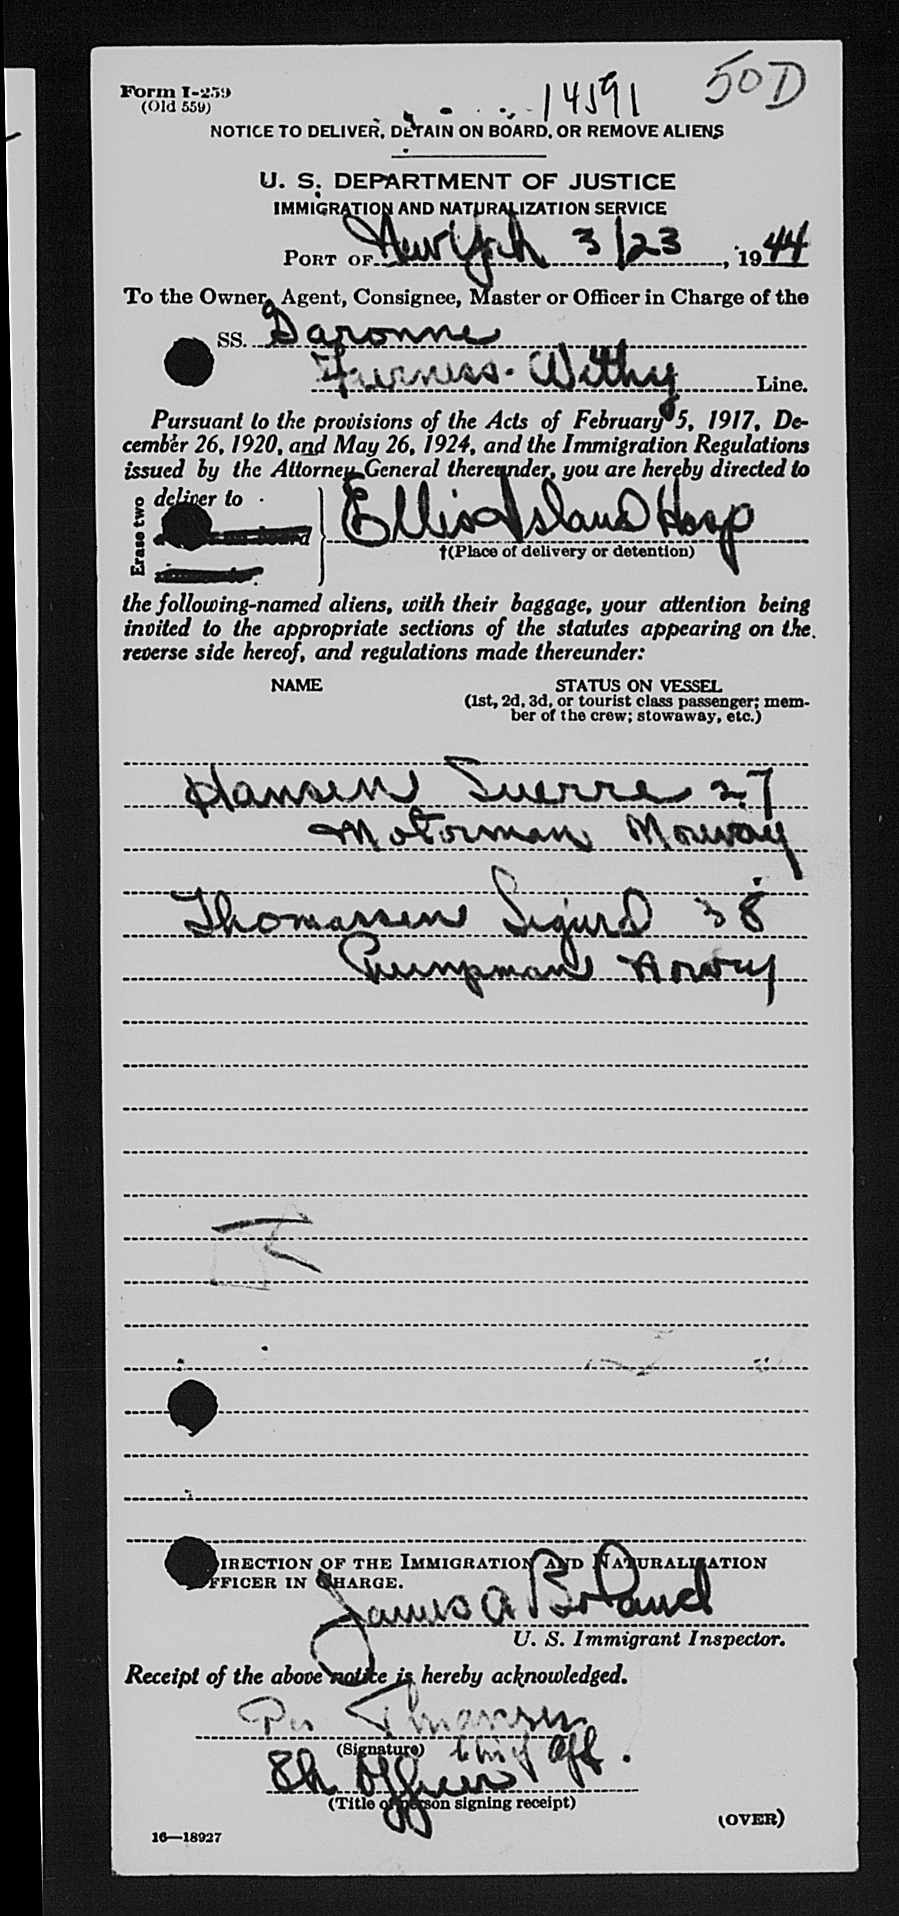 Form I-259
(Old 559)
14591
50D
NOTICE TO DELIVER, DETAIN ON BOARD, OR REMOVE ALIENS
U. S. DEPARTMENT OF JUSTICE
IMMIGRATION AND NATURALIZATION SERVICE
PORT OF New York 3/23, 1944
To the Owner, Agent, Consignee, Master or Officer in Charge of the
SS. Garonne
Furness-Withy Line.
Pursuant to the provisions of the Acts of February 5, 1917, De-
cember 26, 1920, and May 26, 1924, and the Immigration Regulations
issued by the Attorney General thereunder, you are hereby directed to
Erase two
deliver to
Ellis Island Hosp
on board
†(Place of delivery or detention)
the following-named aliens, with their baggage, your attention being
invited to the appropriate sections of the statutes appearing on the
reverse side hereof, and regulations made thereunder:
NAME STATUS ON VESSEL
(1st, 2d, 3d, or tourist class passenger; mem-
ber of the crew; stowaway, etc.)
Hansen Sverre 27
Motorman Norway
Thomassen Sigurd 38
Pumpman Norway
IRECTION OF THE IMMIGRATION AND NATURALIZATION
FFICER IN CHARGE.
James A Boland
U. S. Immigrant Inspector.
Receipt of the above notice is hereby acknowledged.
Per
(Signature) Chief Off.
Ch Officer
(Title of person signing receipt)
(OVER)
16—18927